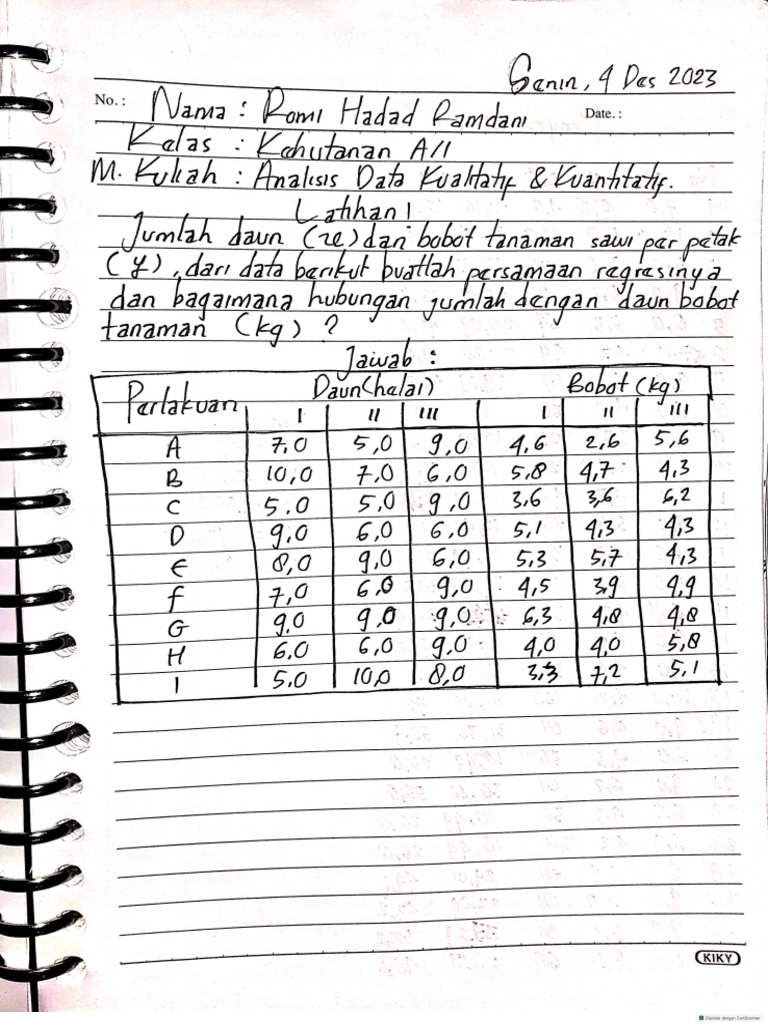 Senin, 4 Des 2023
No. : Nama : Romi Hadad Ramdani Date. :
Kelas : Kehutanan A/1
M. Kuliah : Analisis Data Kualitatif & Kuantitatif.
Latihan 1
Jumlah daun (x) dan bobot tanaman sawi per petak
(y), dari data berikut buatlah persamaan regresinya
dan bagaimana hubungan jumlah dengan daun bobot
tanaman (kg) ?
Jawab :
Perlakuan Daun (helai) Bobot (kg)
I II III I II III
A 7,0 5,0 9,0 4,6 2,6 5,6
B 10,0 7,0 6,0 5,8 4,7 4,3
C 5,0 5,0 9,0 3,6 3,6 6,2
D 9,0 6,0 6,0 5,1 4,3 4,3
E 8,0 9,0 6,0 5,3 5,7 4,3
F 7,0 6,0 9,0 4,5 3,9 4,9
G 9,0 9,0 9,0 6,3 4,8 4,8
H 6,0 6,0 9,0 4,0 4,0 5,8
I 5,0 10,0 8,0 3,3 7,2 5,1
KIKY
Dipindai dengan CamScanner